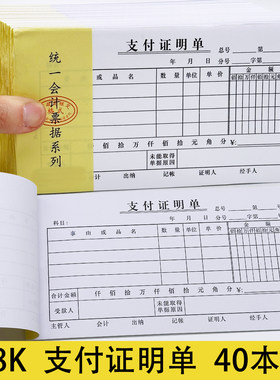 统一会计票据系列
支付证明单
总号
年 月 日 分号 字第
事由或品名 数量 单位 单价 金额
佰 拾 万 仟 佰 拾 元 角 分
佰 拾 万 仟 佰 拾 元 角 分
未能取得
单据原因
会计 出纳 记账 证明人 经手人
支付证明单
总号
科目: 年 月 日 分号 字第
事由或品名 数量 单位 单价 金额
合计金额 仟 佰 拾 万 仟 佰 拾 元 角 分
受款人 未能取得
单据原因
主管人 会计 出纳 记账 证明人 经手人
8K 支付证明单 40本